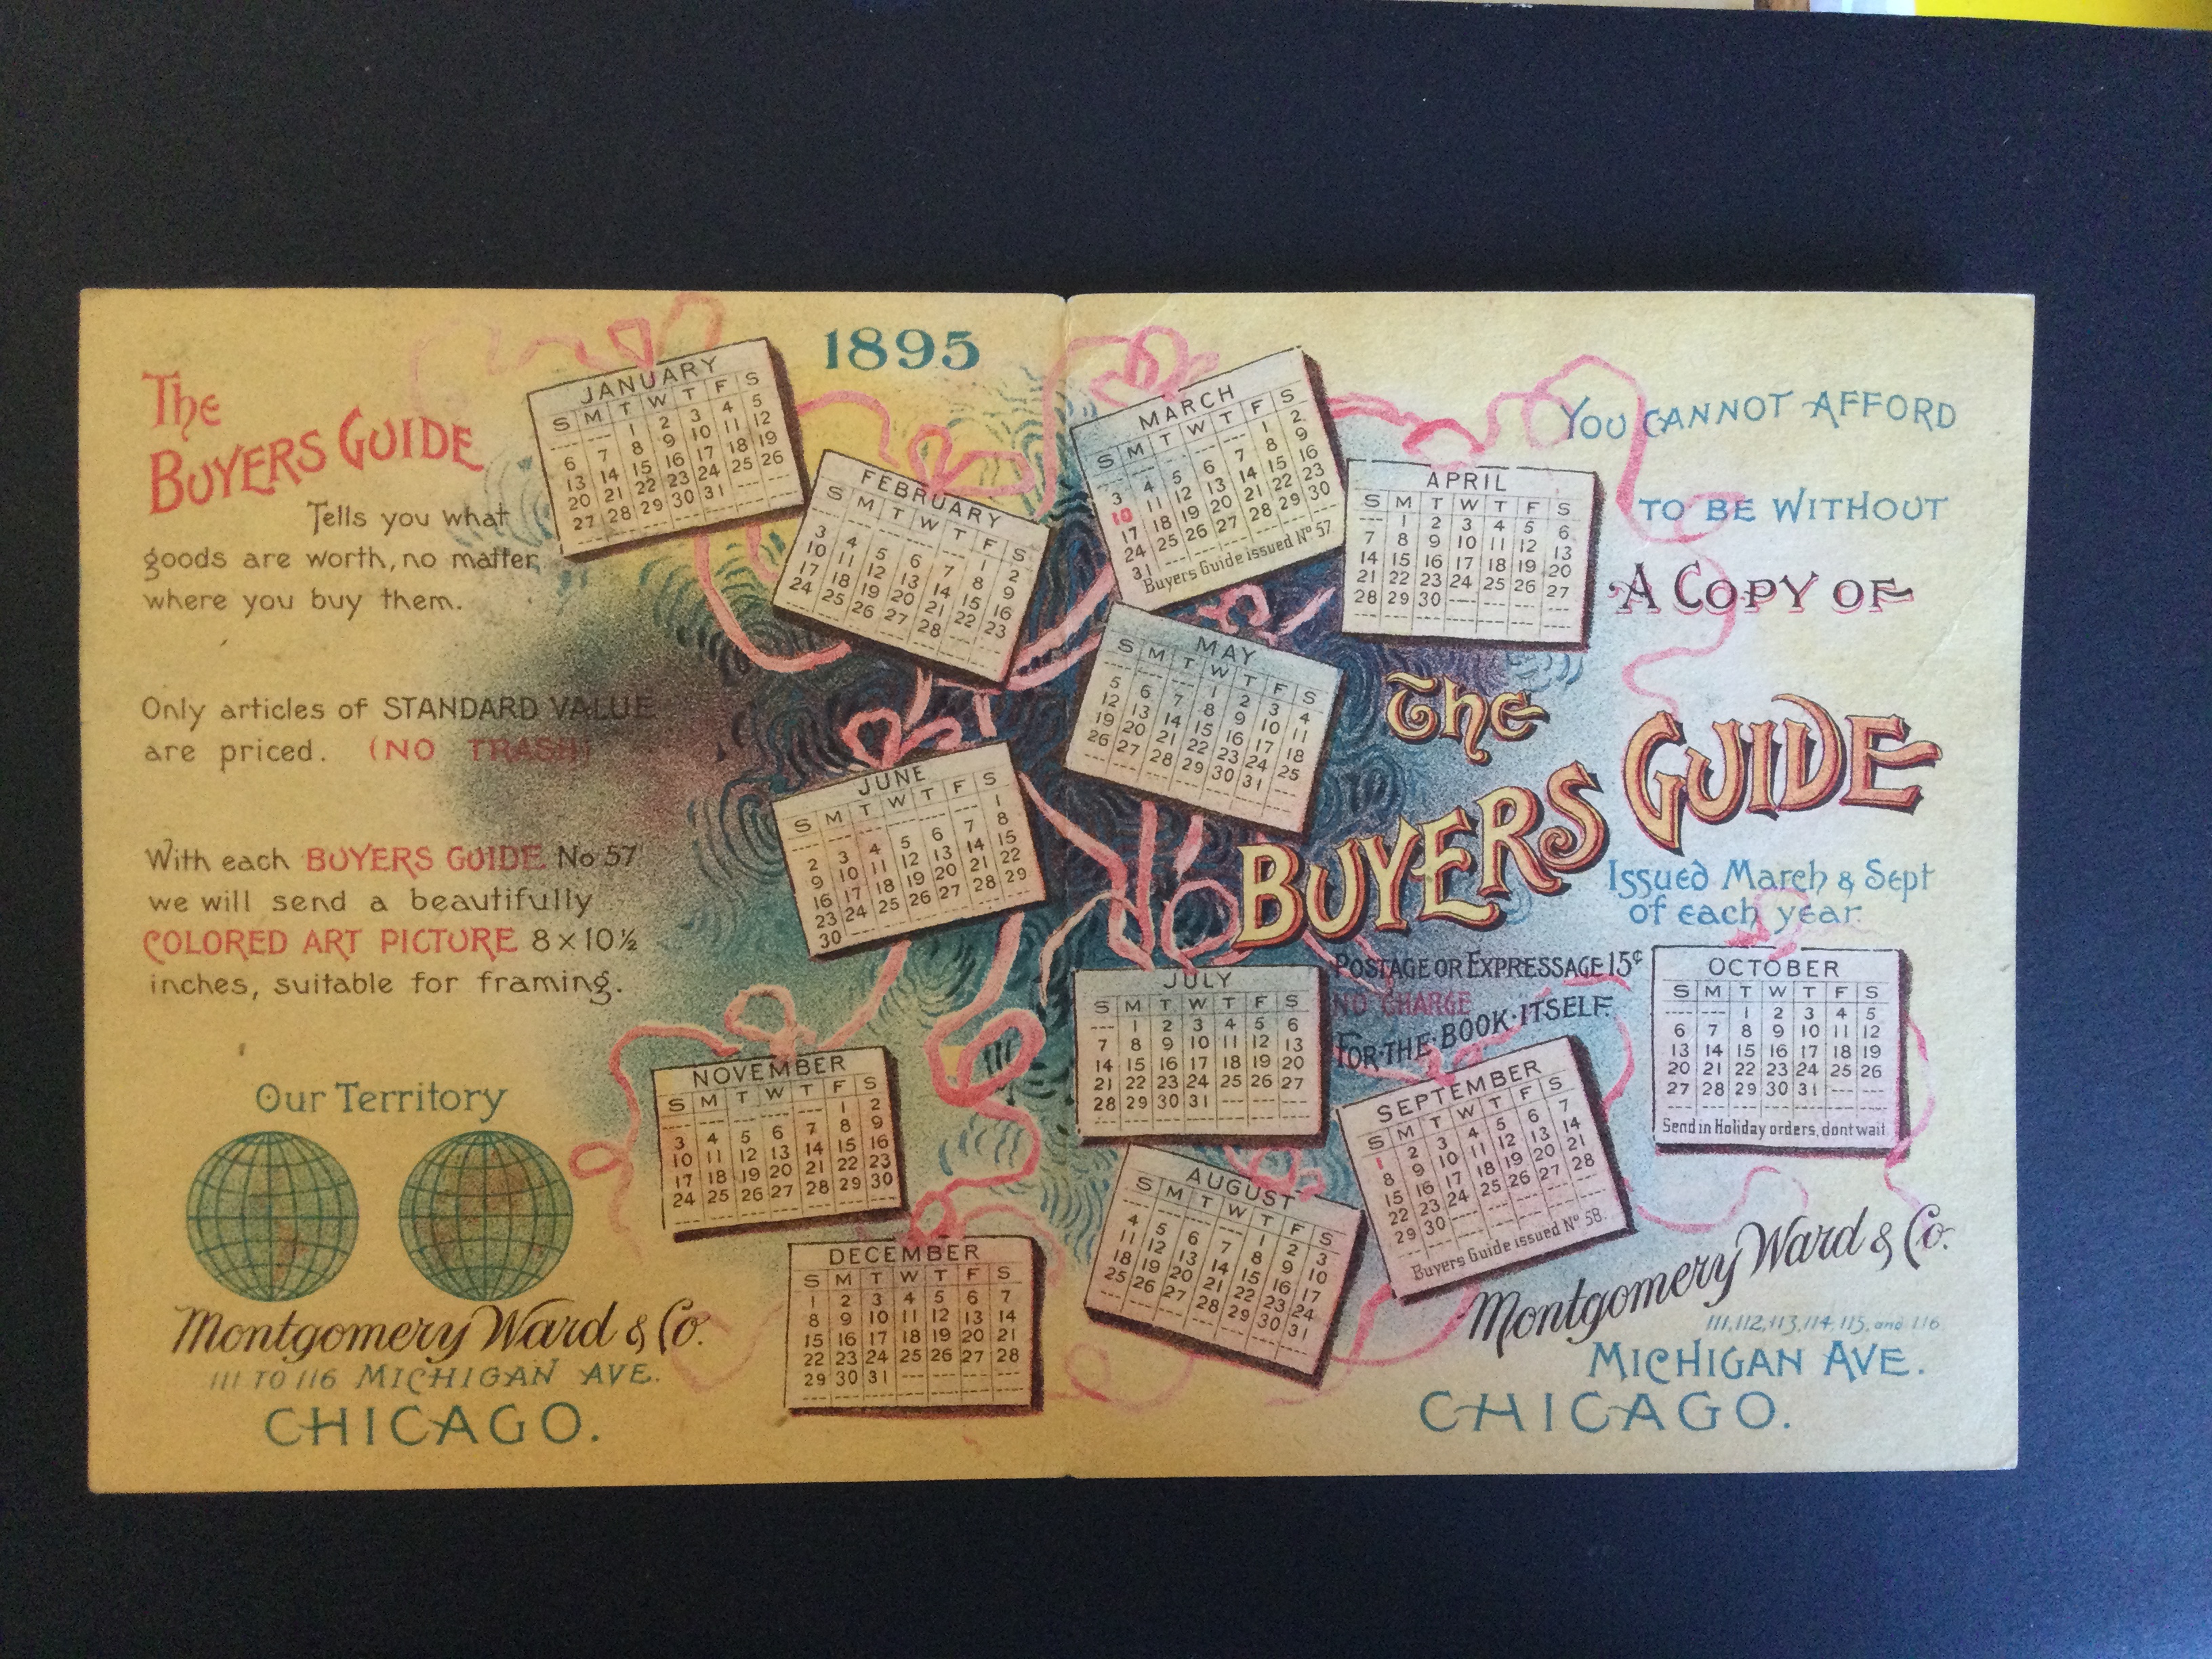 1895
The
BUYERS GUIDE
Tells you what
goods are worth, no matter
where you buy them.
Only articles of STANDARD VALUE
are priced. (NO TRASH)
With each BUYERS GUIDE No 57
we will send a beautifully
COLORED ART PICTURE 8 x 10½
inches, suitable for framing.
Our Territory
Montgomery Ward & Co.
111 TO 116 MICHIGAN AVE.
CHICAGO.
JANUARY
S M T W T F S
1 2 3 4 5
6 7 8 9 10 11 12
13 14 15 16 17 18 19
20 21 22 23 24 25 26
27 28 29 30 31
FEBRUARY
S M T W T F S
1 2
3 4 5 6 7 8 9
10 11 12 13 14 15 16
17 18 19 20 21 22 23
24 25 26 27 28
MARCH
S M T W T F S
1 2
3 4 5 6 7 8 9
10 11 12 13 14 15 16
17 18 19 20 21 22 23
24 25 26 27 28 29 30
31
Buyers Guide issued No 57
APRIL
S M T W T F S
1 2 3 4 5 6
7 8 9 10 11 12 13
14 15 16 17 18 19 20
21 22 23 24 25 26 27
28 29 30
MAY
S M T W T F S
1 2 3 4
5 6 7 8 9 10 11
12 13 14 15 16 17 18
19 20 21 22 23 24 25
26 27 28 29 30 31
JUNE
S M T W T F S
1
2 3 4 5 6 7 8
9 10 11 12 13 14 15
16 17 18 19 20 21 22
23 24 25 26 27 28 29
30
JULY
S M T W T F S
1 2 3 4 5 6
7 8 9 10 11 12 13
14 15 16 17 18 19 20
21 22 23 24 25 26 27
28 29 30 31
AUGUST
S M T W T F S
1 2 3
4 5 6 7 8 9 10
11 12 13 14 15 16 17
18 19 20 21 22 23 24
25 26 27 28 29 30 31
SEPTEMBER
S M T W T F S
1 2 3 4 5 6 7
8 9 10 11 12 13 14
15 16 17 18 19 20 21
22 23 24 25 26 27 28
29 30
Buyers Guide issued No 58.
OCTOBER
S M T W T F S
1 2 3 4 5
6 7 8 9 10 11 12
13 14 15 16 17 18 19
20 21 22 23 24 25 26
27 28 29 30 31
Send in Holiday orders, dont wait
NOVEMBER
S M T W T F S
1 2
3 4 5 6 7 8 9
10 11 12 13 14 15 16
17 18 19 20 21 22 23
24 25 26 27 28 29 30
DECEMBER
S M T W T F S
1 2 3 4 5 6 7
8 9 10 11 12 13 14
15 16 17 18 19 20 21
22 23 24 25 26 27 28
29 30 31
YOU CANNOT AFFORD
TO BE WITHOUT
A COPY OF
The
BUYERS GUIDE
Issued March & Sept
of each year
POSTAGE OR EXPRESSAGE 15¢
NO CHARGE
FOR·THE·BOOK·ITSELF.
Montgomery Ward & Co.
111, 112, 113, 114, 115, and 116
MICHIGAN AVE.
CHICAGO.